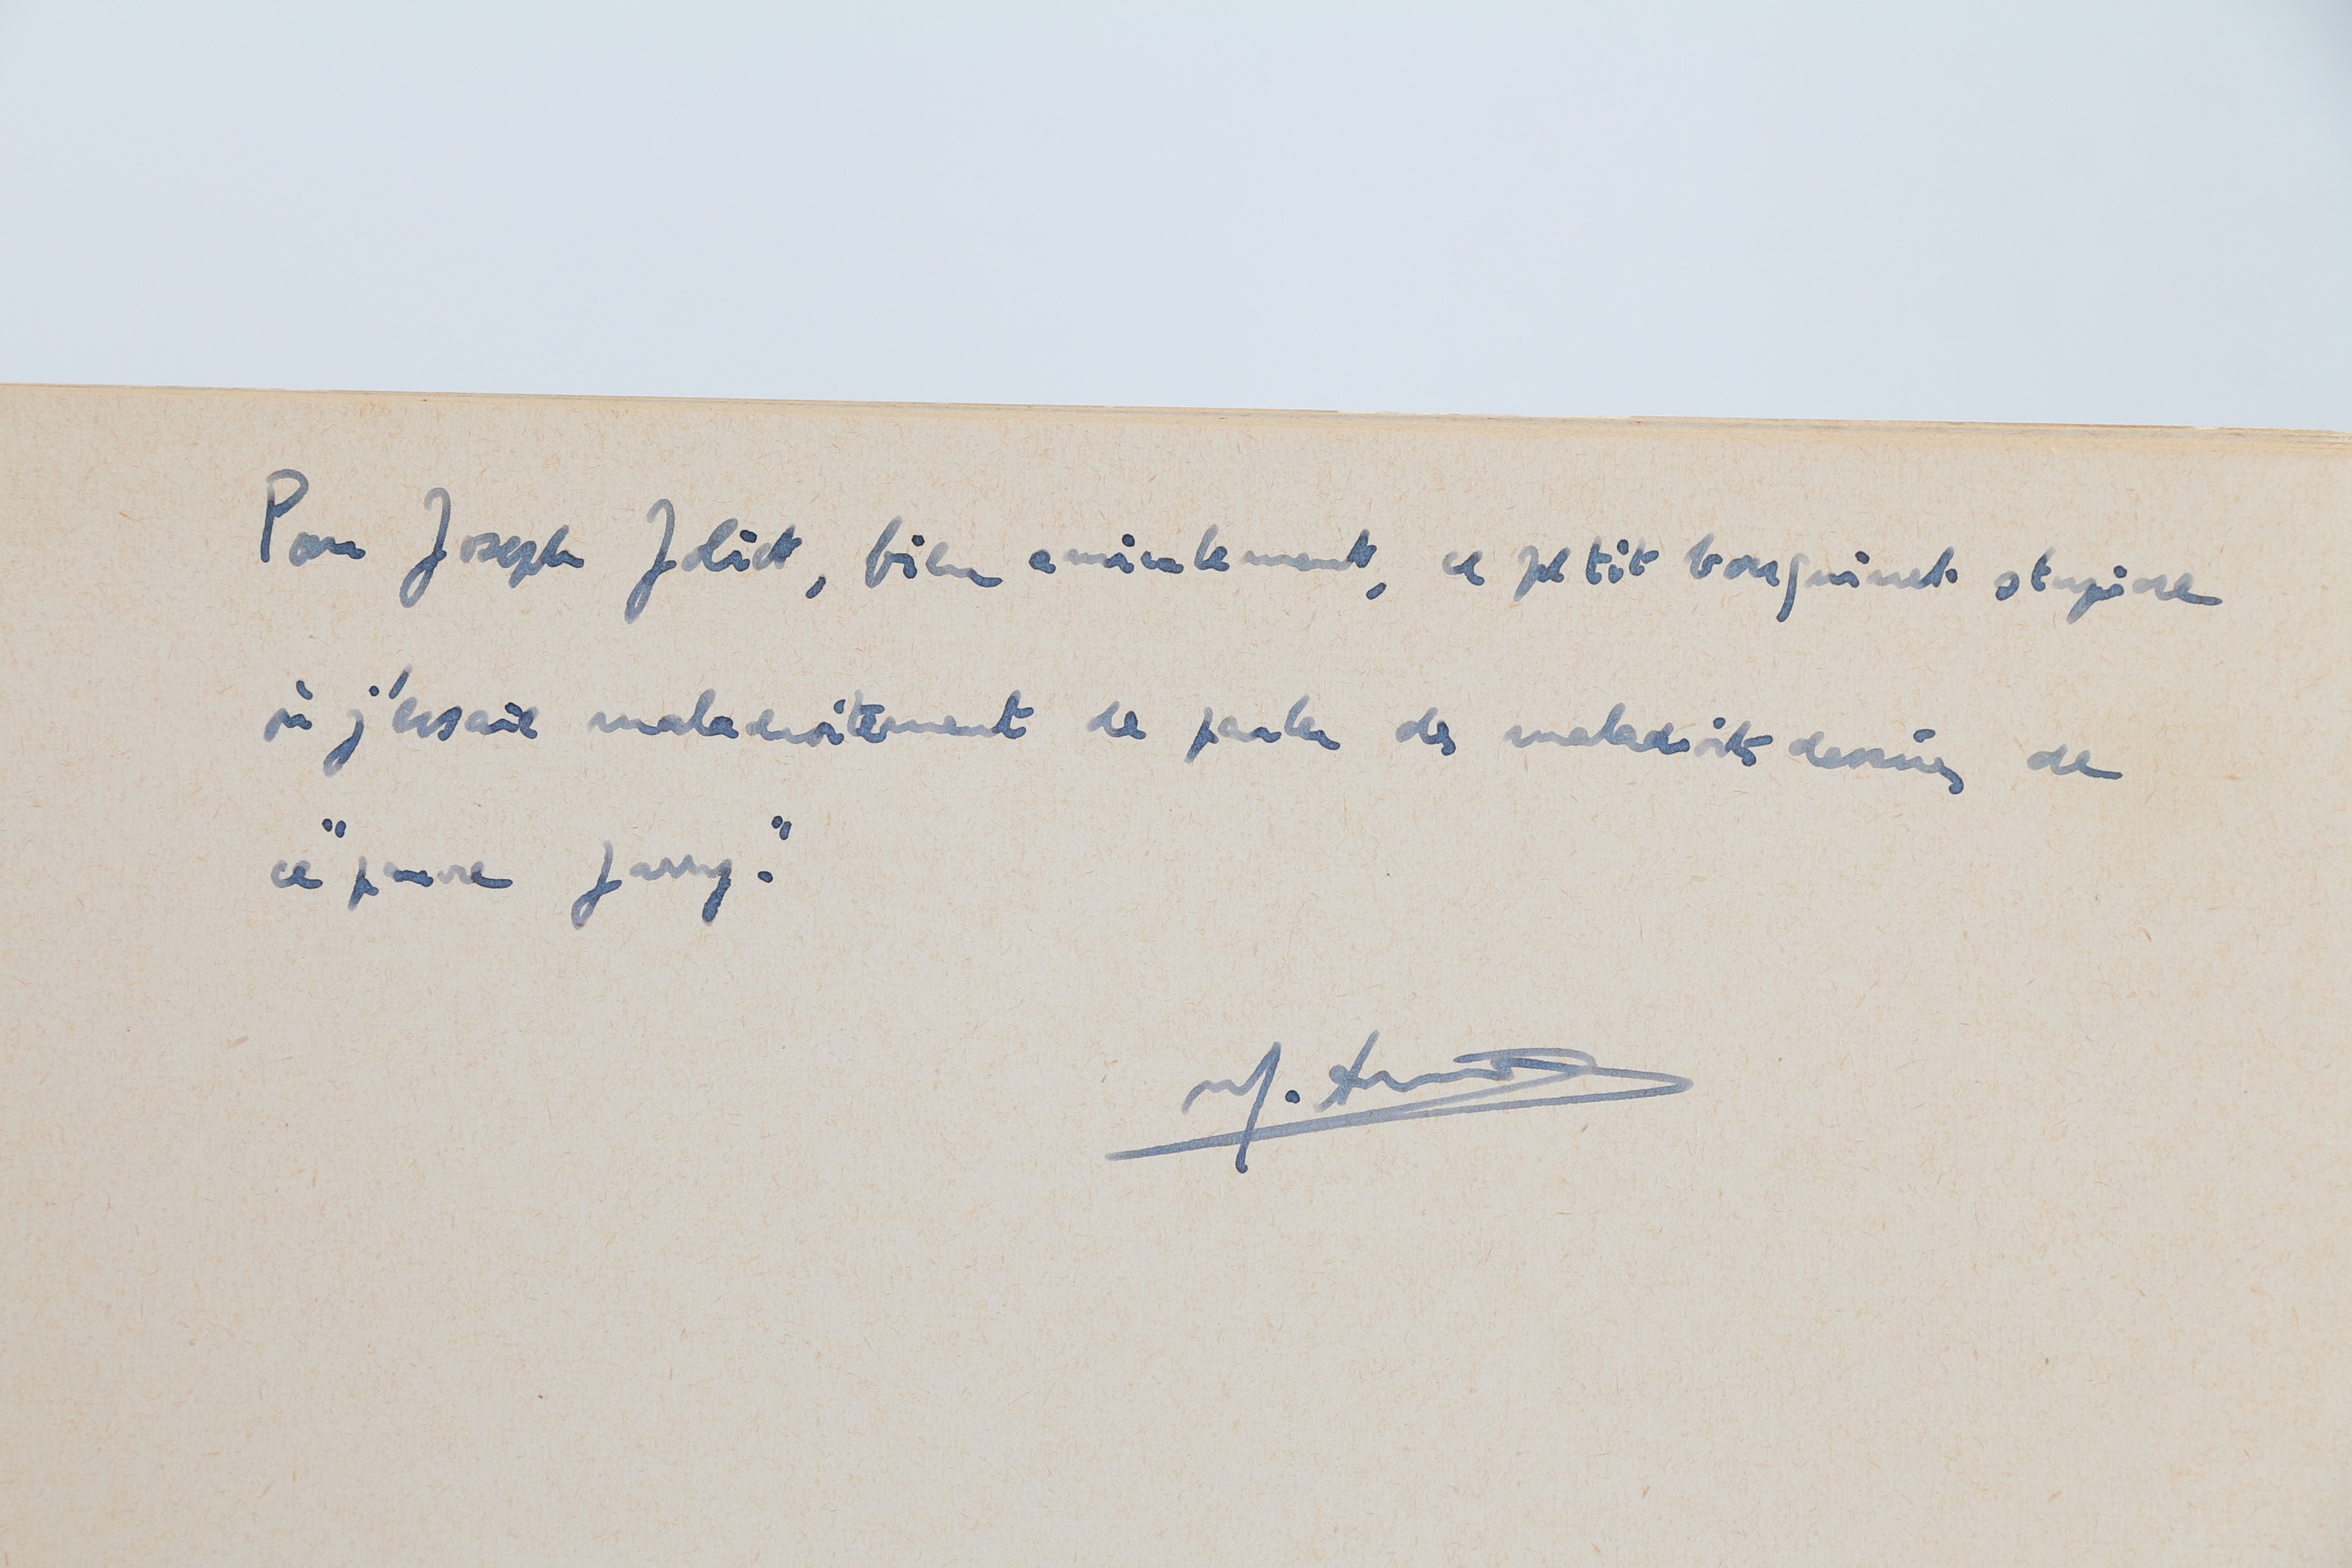 Pour Joseph Joliet, bien amicalement, ce petit bouquinet stupide
où j'essaie maladroitement de parler des maladroits dessins de
ce "pauvre Jarry."
M. Arnaud